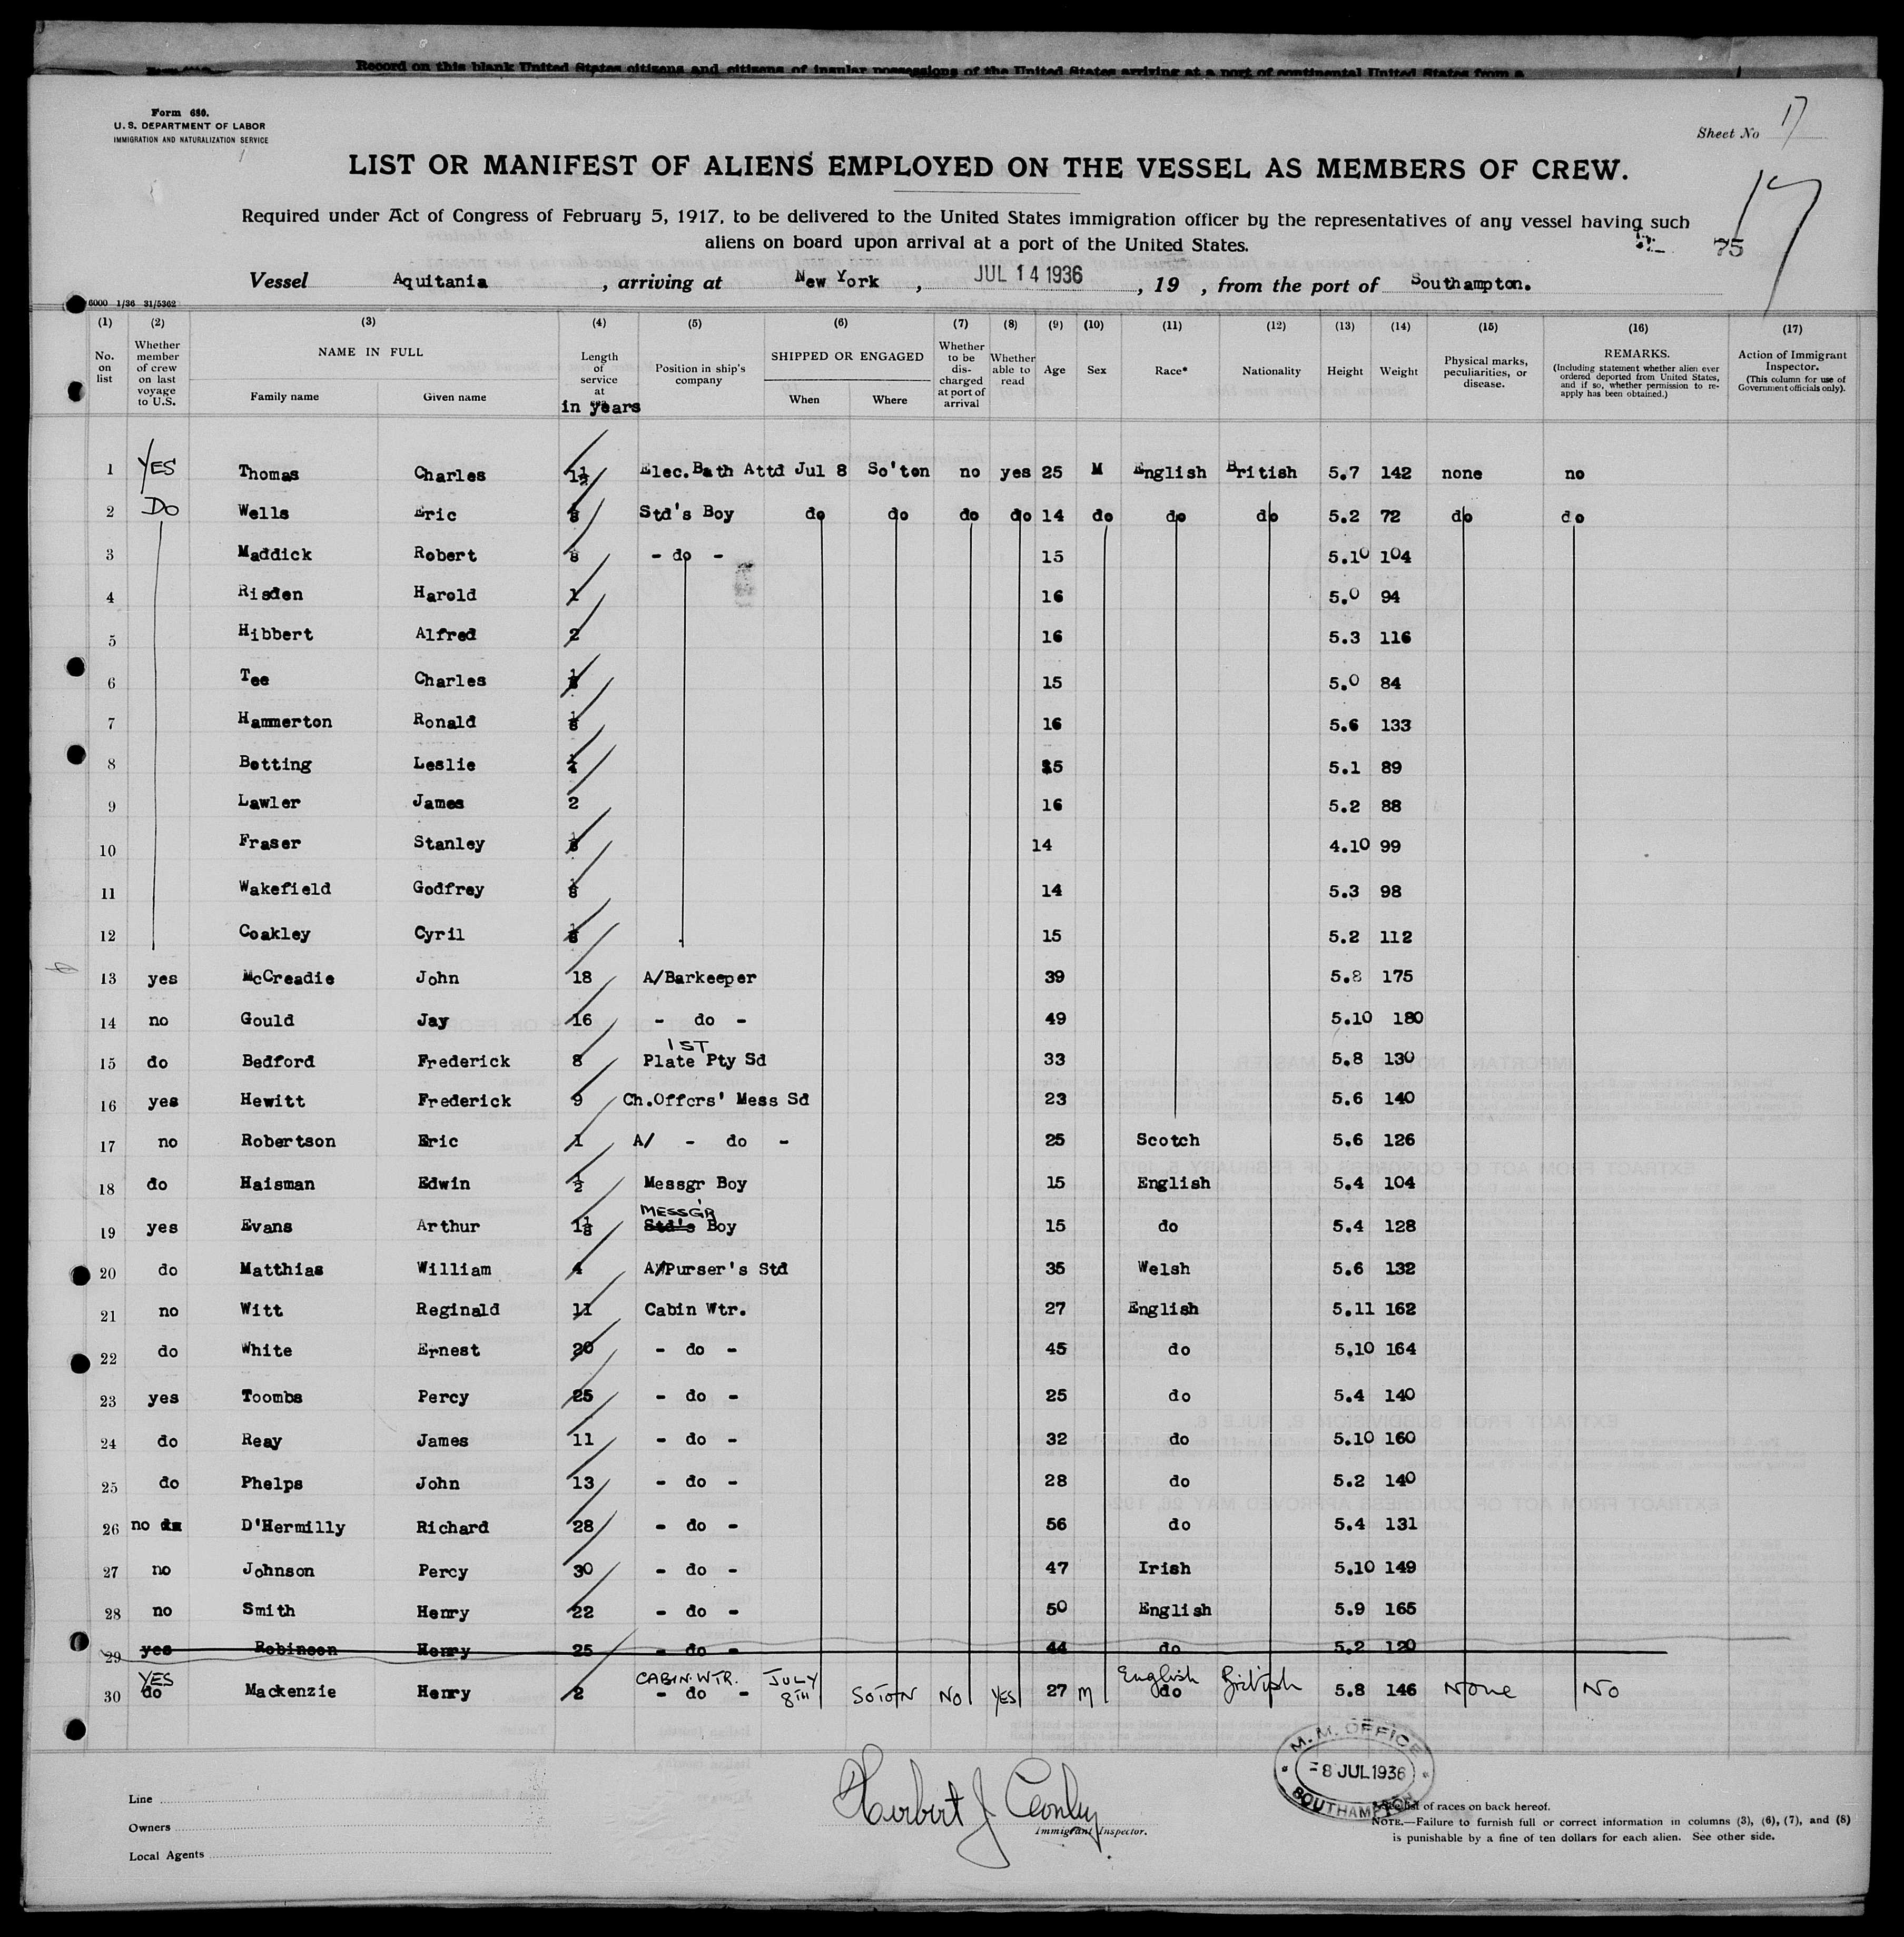 Record on this blank United States citizens and citizens of insular possessions of the United States arriving at a port of continental United States from a
Form 680.
U. S. DEPARTMENT OF LABOR
IMMIGRATION AND NATURALIZATION SERVICE
Sheet No 17
LIST OR MANIFEST OF ALIENS EMPLOYED ON THE VESSEL AS MEMBERS OF CREW.
17
Required under Act of Congress of February 5, 1917, to be delivered to the United States immigration officer by the representatives of any vessel having such
aliens on board upon arrival at a port of the United States.
75
Vessel Aquitania, arriving at New York, JUL 14 1936, 19 , from the port of Southampton.
6000 1/36 31/5362
(1) (2) (3) (4) (5) (6) (7) (8) (9) (10) (11) (12) (13) (14) (15) (16) (17)
No. on list
Whether member of crew on last voyage to U.S.
NAME IN FULL
Family name Given name
Length of service at sea in years
Position in ship's company
SHIPPED OR ENGAGED
When Where
Whether to be discharged at port of arrival
Whether able to read
Age Sex Race* Nationality Height Weight
Physical marks, peculiarities, or disease.
REMARKS.
(Including statement whether alien ever ordered deported from United States, and if so, whether permission to reapply has been obtained.)
Action of Immigrant Inspector.
(This column for use of Government officials only).
1 YES Thomas Charles 1½ Elec.Bath Attd Jul 8 So'ton no yes 25 M English British 5.7 142 none no
2 Do Wells Eric Std's Boy do do do do 14 do do do 5.2 72 do do
3 Maddick Robert - do - 15 5.10 104
4 Risden Harold 1 16 5.0 94
5 Hibbert Alfred 2 16 5.3 116
6 Tee Charles 15 5.0 84
7 Hammerton Ronald 1/8 16 5.6 133
8 Botting Leslie 1/4 15 5.1 89
9 Lawler James 2 16 5.2 88
10 Fraser Stanley 1/8 14 4.10 99
11 Wakefield Godfrey 1/8 14 5.3 98
12 Coakley Cyril 1/8 15 5.2 112
13 yes McCreadie John 18 A/Barkeeper 39 5.8 175
14 no Gould Jay 16 - do - 49 5.10 180
15 do Bedford Frederick 8 1ST Plate Pty Sd 33 5.8 130
16 yes Hewitt Frederick 9 Ch.Offcrs' Mess Sd 23 5.6 140
17 no Robertson Eric 1 A/ - do - 25 Scotch 5.6 126
18 do Haisman Edwin ½ Messgr Boy 15 English 5.4 104
19 yes Evans Arthur 1 1/8 MESSGR Std's Boy 15 do 5.4 128
20 do Matthias William 4 A/Purser's Std 35 Welsh 5.6 132
21 no Witt Reginald 11 Cabin Wtr. 27 English 5.11 162
22 do White Ernest 20 - do - 45 do 5.10 164
23 yes Toombs Percy 25 - do - 25 do 5.4 140
24 do Reay James 11 - do - 32 do 5.10 160
25 do Phelps John 13 - do - 28 do 5.2 140
26 no D'Hermilly Richard 28 - do - 56 do 5.4 131
27 no Johnson Percy 30 - do - 47 Irish 5.10 149
28 no Smith Henry 22 - do - 50 English 5.9 165
29 yes Robinson Henry 25 - do - 44 do 5.2 120
30 YES do Mackenzie Henry 2 CABIN.WTR. - do - JULY 8TH SOTON NO YES 27 M English do British 5.8 146 None No
M. M. OFFICE
8 JUL 1936
SOUTHAMPTON
Line
Owners
Local Agents
Immigrant Inspector.
of races on back hereof.
NOTE.—Failure to furnish full or correct information in columns (3), (6), (7), and (8)
is punishable by a fine of ten dollars for each alien. See other side.